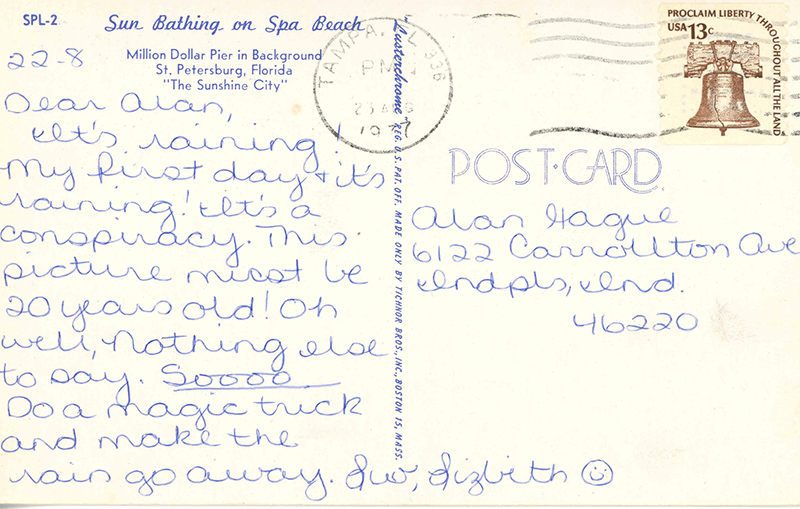 SPL-2
Sun Bathing on Spa Beach
Million Dollar Pier in Background
St. Petersburg, Florida
"The Sunshine City"
22-8
Dear Alan,
It's raining!
My first day & it's
raining! It's a
conspiracy. This
picture must be
20 years old! Oh
well, Nothing else
to say. Soooo
Do a magic trick
and make the
rain go away. Luv, Lizbeth
"Lusterchrome" REG. U.S. PAT. OFF. MADE ONLY BY TICHNOR BROS., INC., BOSTON 15, MASS.
TAMPA, FL 336
PM
1977
PROCLAIM LIBERTY THROUGHOUT ALL THE LAND
USA 13c
POST-CARD
Alan Hague
6122 Carrollton Ave
Indpls, Ind.
46220